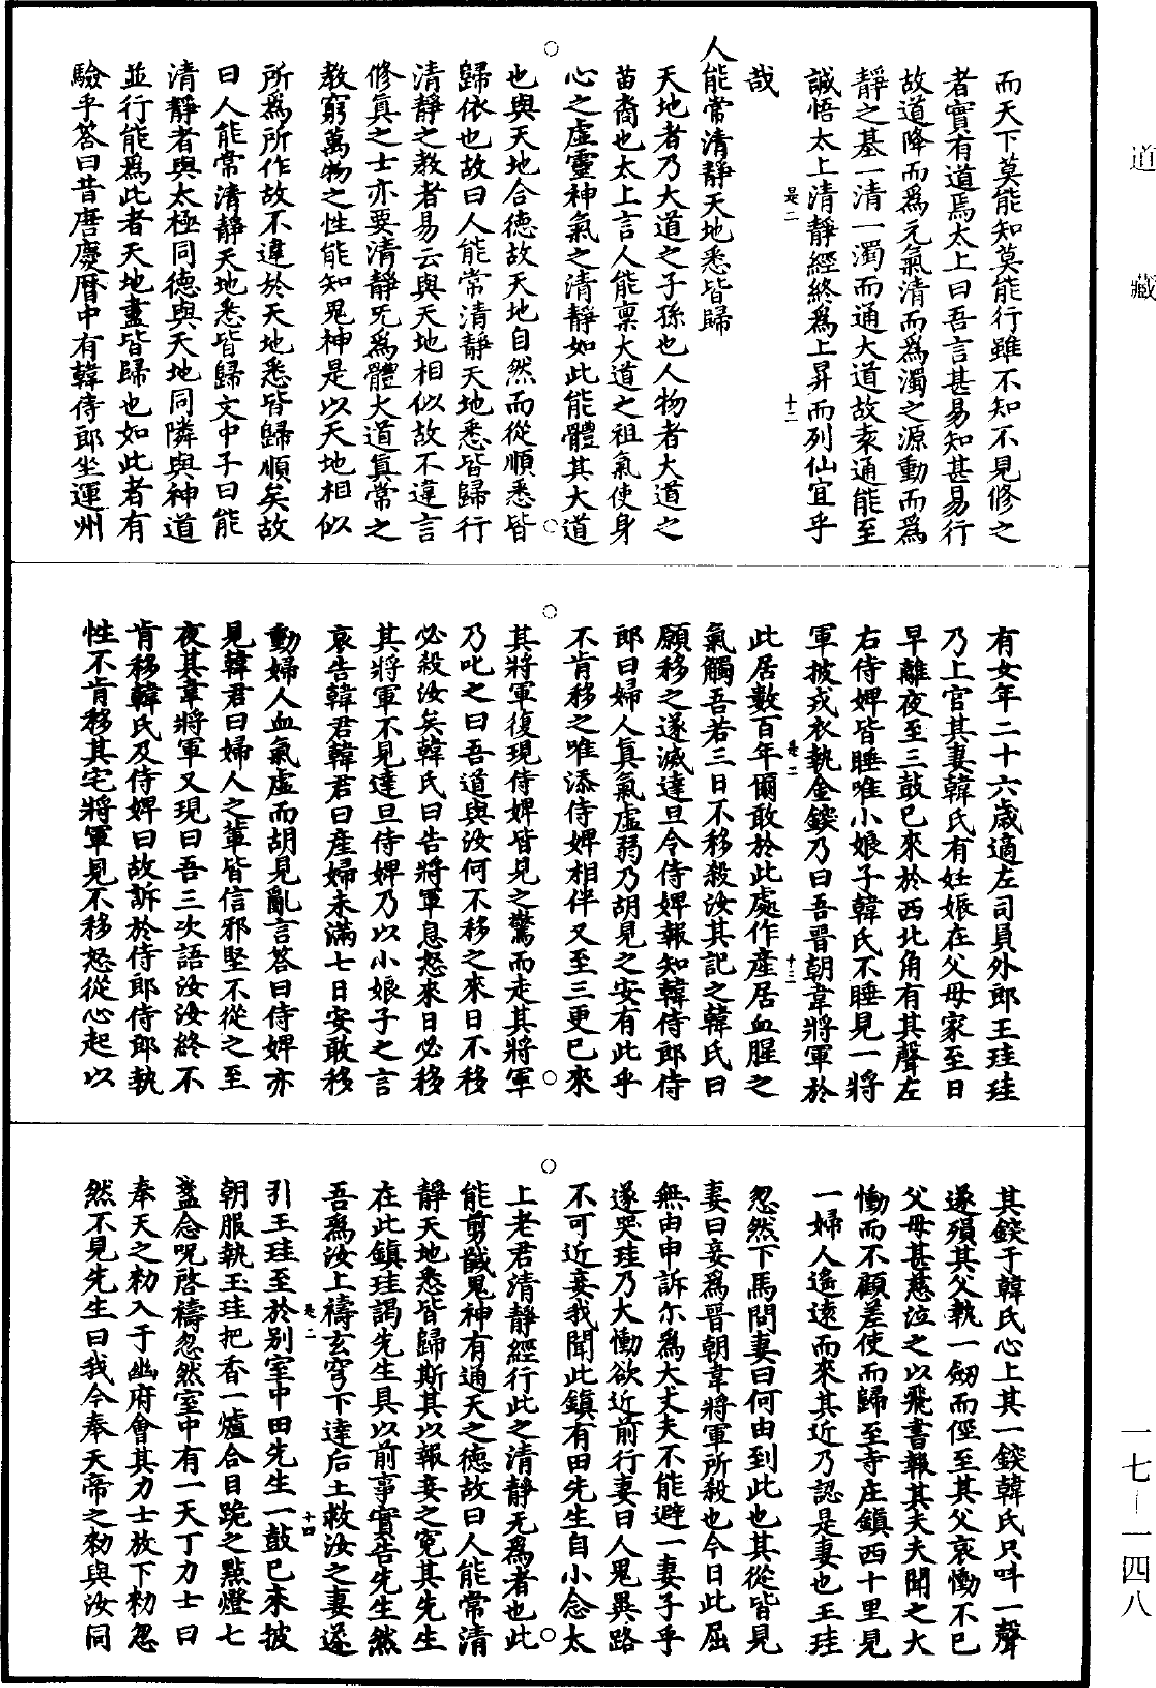 道藏
而天下莫能知莫能行雖不知不見修之
者實有道焉太上曰吾言甚易知甚易行
故道降而為元氣清而為濁之源動而為
靜之基一清一濁而通大道故表通能至
誠悟太上清靜經終為上昇而列仙宜乎
是二 十二
哉
人能常清靜天地悉皆歸
天地者乃大道之子孫也人物者大道之
苗裔也太上言人能稟大道之祖氣使身
心之虛靈神氣之清靜如此能體其大道
也與天地合德故天地自然而從順悉皆
歸依也故曰人能常清靜天地悉皆歸行
清靜之教者易云與天地相似故不違言
修真之士亦要清靜旡為體大道真常之
教窮萬物之性能知鬼神是以天地相似
所為所作故不違於天地悉皆歸順矣故
曰人能常清靜天地悉皆歸文中子曰能
清靜者與太極同德與天地同隣與神道
並行能為此者天地盡皆歸也如此者有
驗乎答曰昔唐慶曆中有韓侍郎坐運州
有女年二十六歲適左司員外郎王珪珪
乃上官其妻韓氏有妊娠在父母家至日
早離夜至三鼓已來於西北角有其聲左
右侍婢皆睡唯小娘子韓氏不睡見一將
軍披戎衣執金鎈乃曰吾晉朝韋將軍於
是二 十三
此居數百年爾敢於此處作產居血腥之
氣觸吾若三日不移殺汝其記之韓氏曰
願移之遂滅達旦令侍婢報知韓侍郎侍
郎曰婦人真氣虛弱乃胡見之安有此乎
不肯移之唯添侍婢相伴又至三更已來
其將軍復現侍婢皆見之驚而走其將軍
乃叱之曰吾道與汝何不移之來日不移
必殺汝矣韓氏曰告將軍息怒來日必移
其將軍不見達旦侍婢乃以小娘子之言
哀告韓君韓君曰產婦未滿七日安敢移
動婦人血氣虛而胡見亂言答曰侍婢亦
見韓君曰婦人之輩皆信邪堅不從之至
夜其韋將軍又現曰吾三次語汝汝終不
肯移韓氏及侍婢曰故訴於侍郎侍郎執
性不肯移其宅將軍見不移怒從心起以
其鎈于韓氏心上其一鎈韓氏只叫一聲
遂殞其父執一劒而俓至其父哀慟不已
父母甚慈泣之以飛書報其夫夫聞之大
慟而不顧差使而歸至寺庄鎮西十里見
一婦人遙遠而來其近乃認是妻也王珪
忽然下馬問妻曰何由到此也其從皆見
妻曰妾為晉朝韋將軍所殺也今日此屈
無由申訴尔為大丈夫不能避一妻子乎
遂哭珪乃大慟欲近前行妻曰人鬼異路
不可近妾我聞此鎮有田先生自小念太
上老君清靜經行此之清靜无為者也此
能剪馘鬼神有通天之德故曰人能常清
靜天地悉皆歸斯其以報妾之冤其先生
在此鎮珪謁先生具以前事實告先生然
吾為汝上禱玄穹下達后土救汝之妻遂
是二 十四
引王珪至於別室中田先生一鼓已來披
朝服執玉珪把香一爐合目跪之點燈七
盞念呪啓禱忽然室中有一天丁力士曰
奉天之勑入于幽府會其力士放下勑忽
然不見先生曰我今奉天帝之勑與汝同
一七—一四八